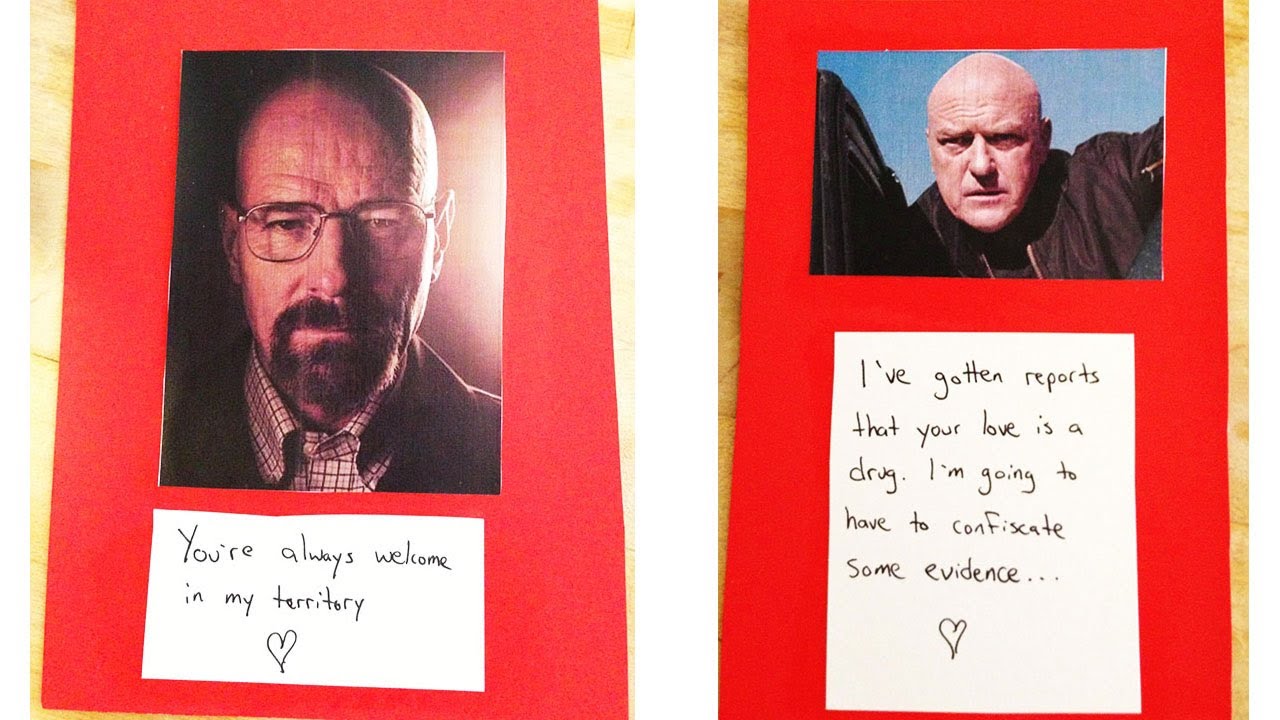 You're always welcome
in my territory
I've gotten reports
that your love is a
drug. I'm going to
have to confiscate
some evidence...